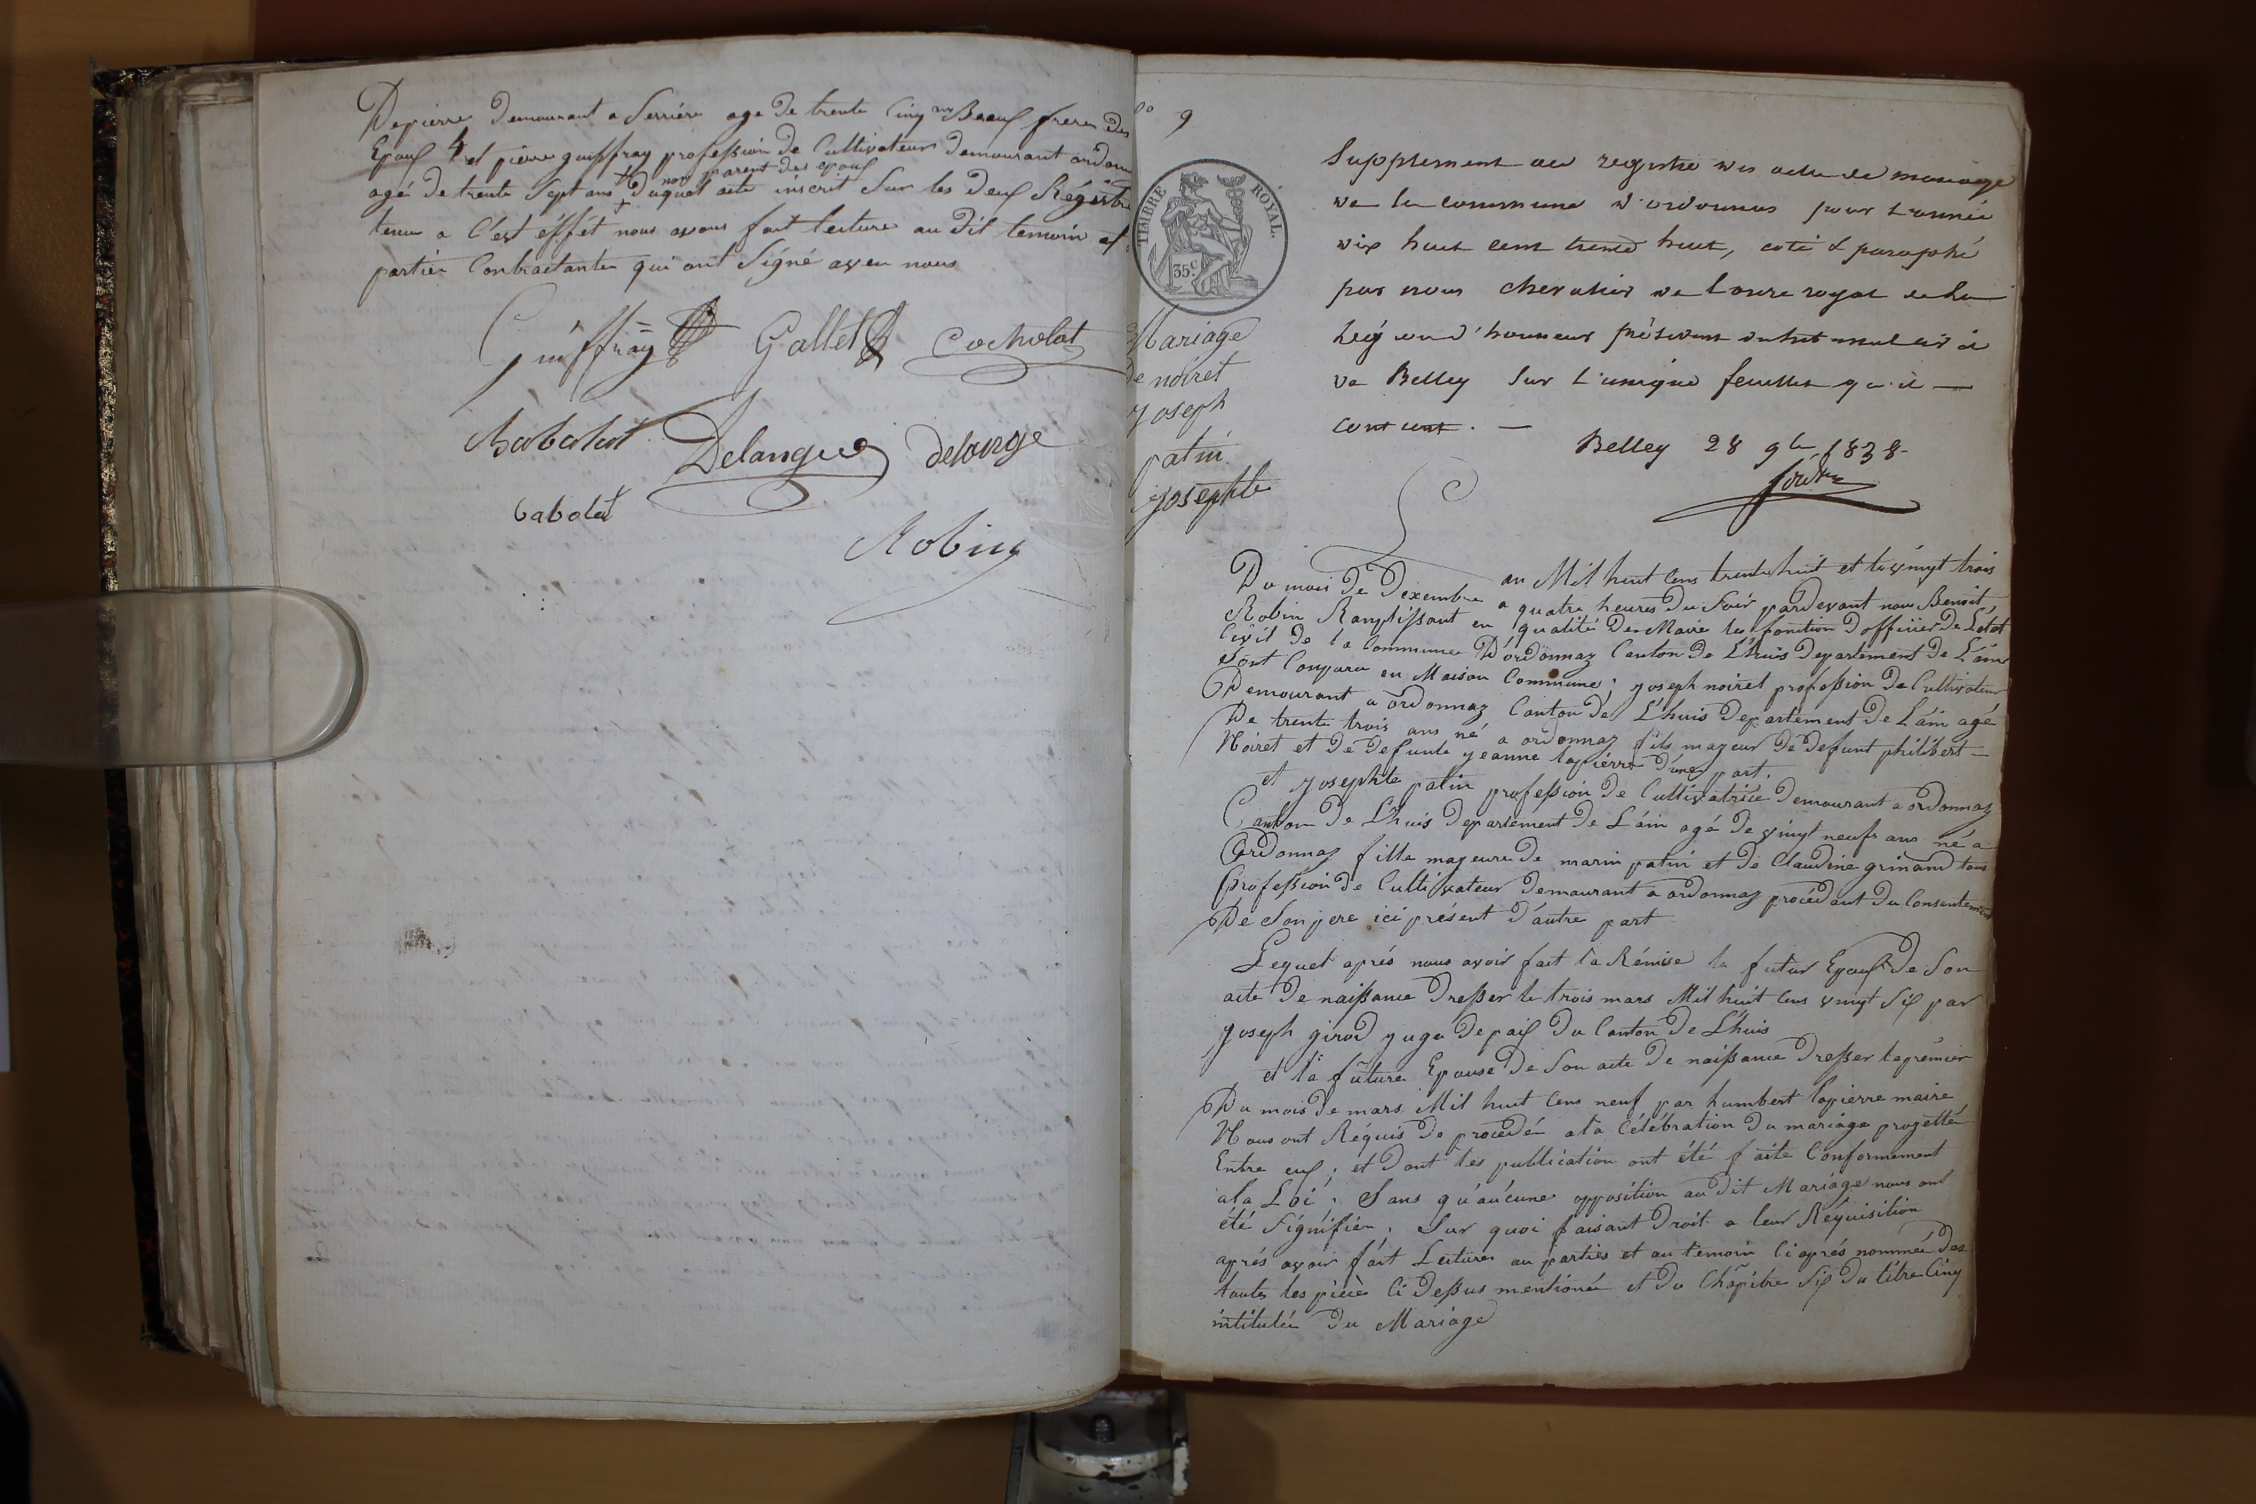 Depierre demeurant a Serriére age de trente Cinq ans Beauf freres des
Epouf 4 et pierre guiffray profession de Cultivateur demeurant ordonn
non parent des epouf
agé de trente Sept ans + Duquel acte inscrit Sur les deuf Régistre
tenu a C'est éffét nous avons fait lecture au dit temoin et
partier Contractante qui ont Signé avec nous
Guiffray Gallet Cocholat
Chabolat Delangue delange
Cabolat
Robin
9
TIMBRE ROYAL.
35.c
Mariage
de noiret
joseph
patin
josephte
Supplement au registre des actes de mariage
de la commune d'ordonnas pour l'année
dix huit cent trente huit, coté & paraphé
par nous chevalier de l'ordre royal de la
Légion d'honneur président du tribunal civil
de Belley Sur l'unique feuillet qu'il
contient.
Belley 28 9bre 1838
L'an Mil huit Cens trente huit et le vingt trois
Du mois de Dexembre a quatre heures du Soir pardevant nous Benoit
Robin Ramplissant en qualité de Maire les fonction d'officier de L'état
Civil de la Commune D'ordonnaz Canton de L'huis Departement de L'ain
Sont Comparu en Maison Commune; joseph noiret profession de Cultivateur
Demeurant a ordonnaz Canton de L'huis Departement de L'ain agé
De trente trois ans né a ordonnaz fils majeur de defunt philibert
Noiret et de defunte jeanne lapierre d'une part.
et josephte patin profession de Cultivatrice demeurant a ordonnaz
Canton de L'huis Departement de L'ain agé de vingt neufs ans né a
Ordonnaz fille majeure de marin patin et de Claudine grinand tous
profession de Cultivateur demeurant a ordonnaz procédant du Consentement
De Son pere ici présent d'autre part
Lequel aprés nous avoir fait la Rémise le futur Epouf de Son
acte de naissance Dresser le trois mars Mil huit Cens vingt Sif par
joseph girod juge de paif du Canton de L'huis
et la future Epouse de Son acte de naissance dresser le prémier
Du mois de mars Mil huit Cens neuf par humbert lapierre maire
Nous ont Réquis de procédér a la Célébration du mariage progetté
Entre euf; et dont les publication ont été faite Conformement
a la Loi, Sans qu'aucune opposition au dit Mariage nous ont
été Signifiér, Sur quoi faisant droit a leur Réquisition
aprés avoir fait Lecture au parties et au temoin Ci aprés nommée de
toutes les pièce Ci dessus mentionée et du Chapitre Sif du titre Cinq
intitulée Du Mariage